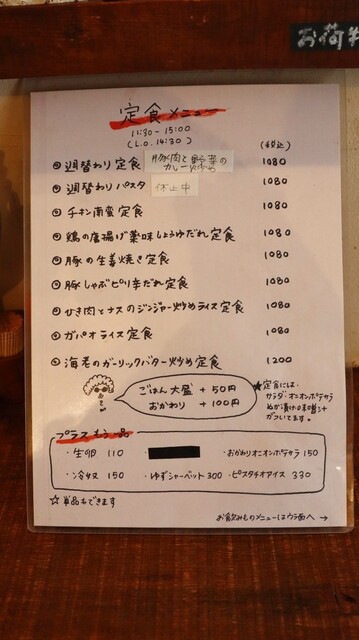 お荷物
定食メニュー
11:30 - 15:00
(L.O. 14:30)
(税込)
週替わり定食 豚肉と野菜のカレー炒め 1080
週替わりパスタ 休止中 1080
チキン南蛮定食 1080
鶏の唐揚げ薬味しょうゆだれ定食 1080
豚の生姜焼き定食 1080
豚しゃぶピリ辛だれ定食 1080
ひき肉とナスのジンジャー炒めライス定食 1080
ガパオライス定食 1080
海老のガーリックバター炒め定食 1200
ごはん大盛 + 50円
おかわり + 100円
★定食には、
サラダ・オニオンポテサラ
ぬか漬け・味噌汁
がついてます。
プラスもう一品
・生卵 110
・おかわりオニオンポテサラ 150
・冷奴 150 ・ゆずシャーベット 300 ・ピスタチオアイス 330
☆単品もできます
お飲みものメニューはウラ面へ →